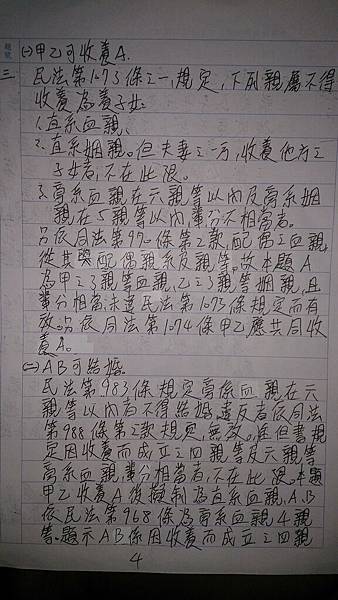 題號
㈠甲乙可收養A.
三 民法第1073條之一規定,下列親屬不得
收養為養子女:
1.直系血親、
2.直系姻親。但夫妻之一方,收養他方之
子女者,不在此限。
3.旁系血親在六親等以內及旁系姻
親在5親等以內輩分不相當者。
另依同法第970條第2款,配偶之血親
從其與配偶親系及親等。故本題A
為甲之3親等血親,乙之3親等姻親,且
輩分相當,未違民法第1073條規定而有
效。另依同法第1074條甲乙應共同收
養A。
㈡AB可結婚
民法第983條規定旁系血親在六
親等以內者不得結婚,違反者依同法
第988條第2款規定,無效。惟但書規
定因收養而成立之四親等及六親等
旁系血親,輩分相當者,不在此限。本題
甲乙收養A後擬制為直系血親,A.B
依民法第968條為旁系血親4親
等。題示AB係因收養而成立之四親
4